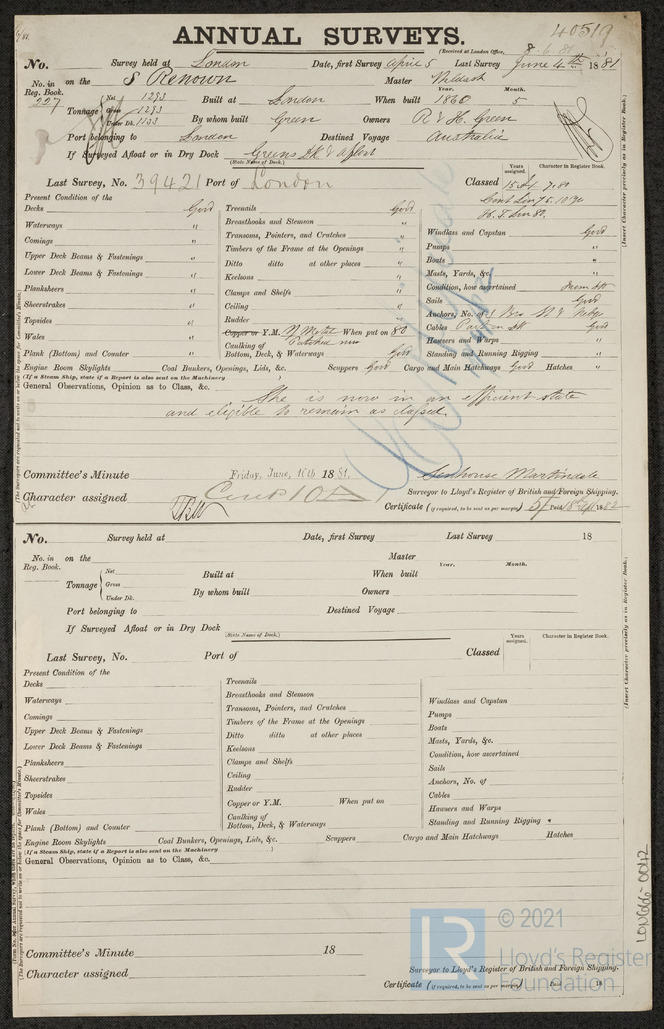 40519
ANNUAL SURVEYS.
(Received at London Office, 8.6.81
No. Survey held at London Date, first Survey April 5 Last Survey June 4th 1881
No. in Reg. Book. 227 on the S Renown Master
Year. Month.
Tonnage Net 1293 Gross 1293 Under Dk. 1133 Built at London When built 1860 5
By whom built Green Owners R & H. Green
Port belonging to London Destined Voyage Australia
If Surveyed Afloat or in Dry Dock Greens Dk & Afloat
(State Name of Dock.)
Years assigned. Character in Register Book.
Last Survey, No. 39421 Port of London Classed 15 7.80
Present Condition of the
Decks Good
Waterways "
Comings "
Upper Deck Beams & Fastenings "
Lower Deck Beams & Fastenings "
Planksheers "
Sheerstrakes "
Topsides "
Wales "
Plank (Bottom) and Counter "
Treenails Good
Breasthooks and Stemson "
Transoms, Pointers, and Crutches "
Timbers of the Frame at the Openings "
Ditto ditto at other places "
Keelsons "
Clamps and Shelfs "
Ceiling "
Rudder "
Copper or Y.M. Y Metal When put on 80
Caulking of Bottom, Deck, & Waterways Good
Windlass and Capstan Good
Pumps "
Boats "
Masts, Yards, &c. "
Condition, how ascertained From Dk
Sails Good
Anchors, No. of
Cables Good
Hawsers and Warps "
Standing and Running Rigging "
Engine Room Skylights Coal Bunkers, Openings, Lids, &c. Scuppers Good Cargo and Main Hatchways Good Hatches "
(If a Steam Ship, state if a Report is also sent on the Machinery )
General Observations, Opinion as to Class, &c. She is now in an efficient state
and eligible to remain as classed.
Committee's Minute Friday, June, 10th 1881.
Senhouse Martindale
Character assigned
Surveyor to Lloyd's Register of British and Foreign Shipping.
Certificate (if required, to be sent as per margin) 5/
(Insert Character precisely as in Register Book.)
(The Surveyors are requested not to write on or below the space for Committee's Minute.)
No. Survey held at Date, first Survey Last Survey 18
No. in Reg. Book. on the Master
Year. Month.
Tonnage Net Gross Under Dk. Built at When built
By whom built Owners
Port belonging to Destined Voyage
If Surveyed Afloat or in Dry Dock
(State Name of Dock.)
Years assigned. Character in Register Book.
Last Survey, No. Port of Classed
Present Condition of the
Decks
Waterways
Comings
Upper Deck Beams & Fastenings
Lower Deck Beams & Fastenings
Planksheers
Sheerstrakes
Topsides
Wales
Plank (Bottom) and Counter
Treenails
Breasthooks and Stemson
Transoms, Pointers, and Crutches
Timbers of the Frame at the Openings
Ditto ditto at other places
Keelsons
Clamps and Shelfs
Ceiling
Rudder
Copper or Y.M. When put on
Caulking of Bottom, Deck, & Waterways
Windlass and Capstan
Pumps
Boats
Masts, Yards, &c.
Condition, how ascertained
Sails
Anchors, No. of
Cables
Hawsers and Warps
Standing and Running Rigging
Engine Room Skylights Coal Bunkers, Openings, Lids, &c. Scuppers Cargo and Main Hatchways Hatches
(If a Steam Ship, state if a Report is also sent on the Machinery )
General Observations, Opinion as to Class, &c.
Committee's Minute 18
Character assigned
Surveyor to Lloyd's Register of British and Foreign Shipping.
Certificate (if required, to be sent as per margin) Paid 18
(Insert Character precisely as in Register Book.)
(The Surveyors are requested not to write on or below the space for Committee's Minute.)
LON666-0042
LR
© 2021
Lloyd's Register
Foundation